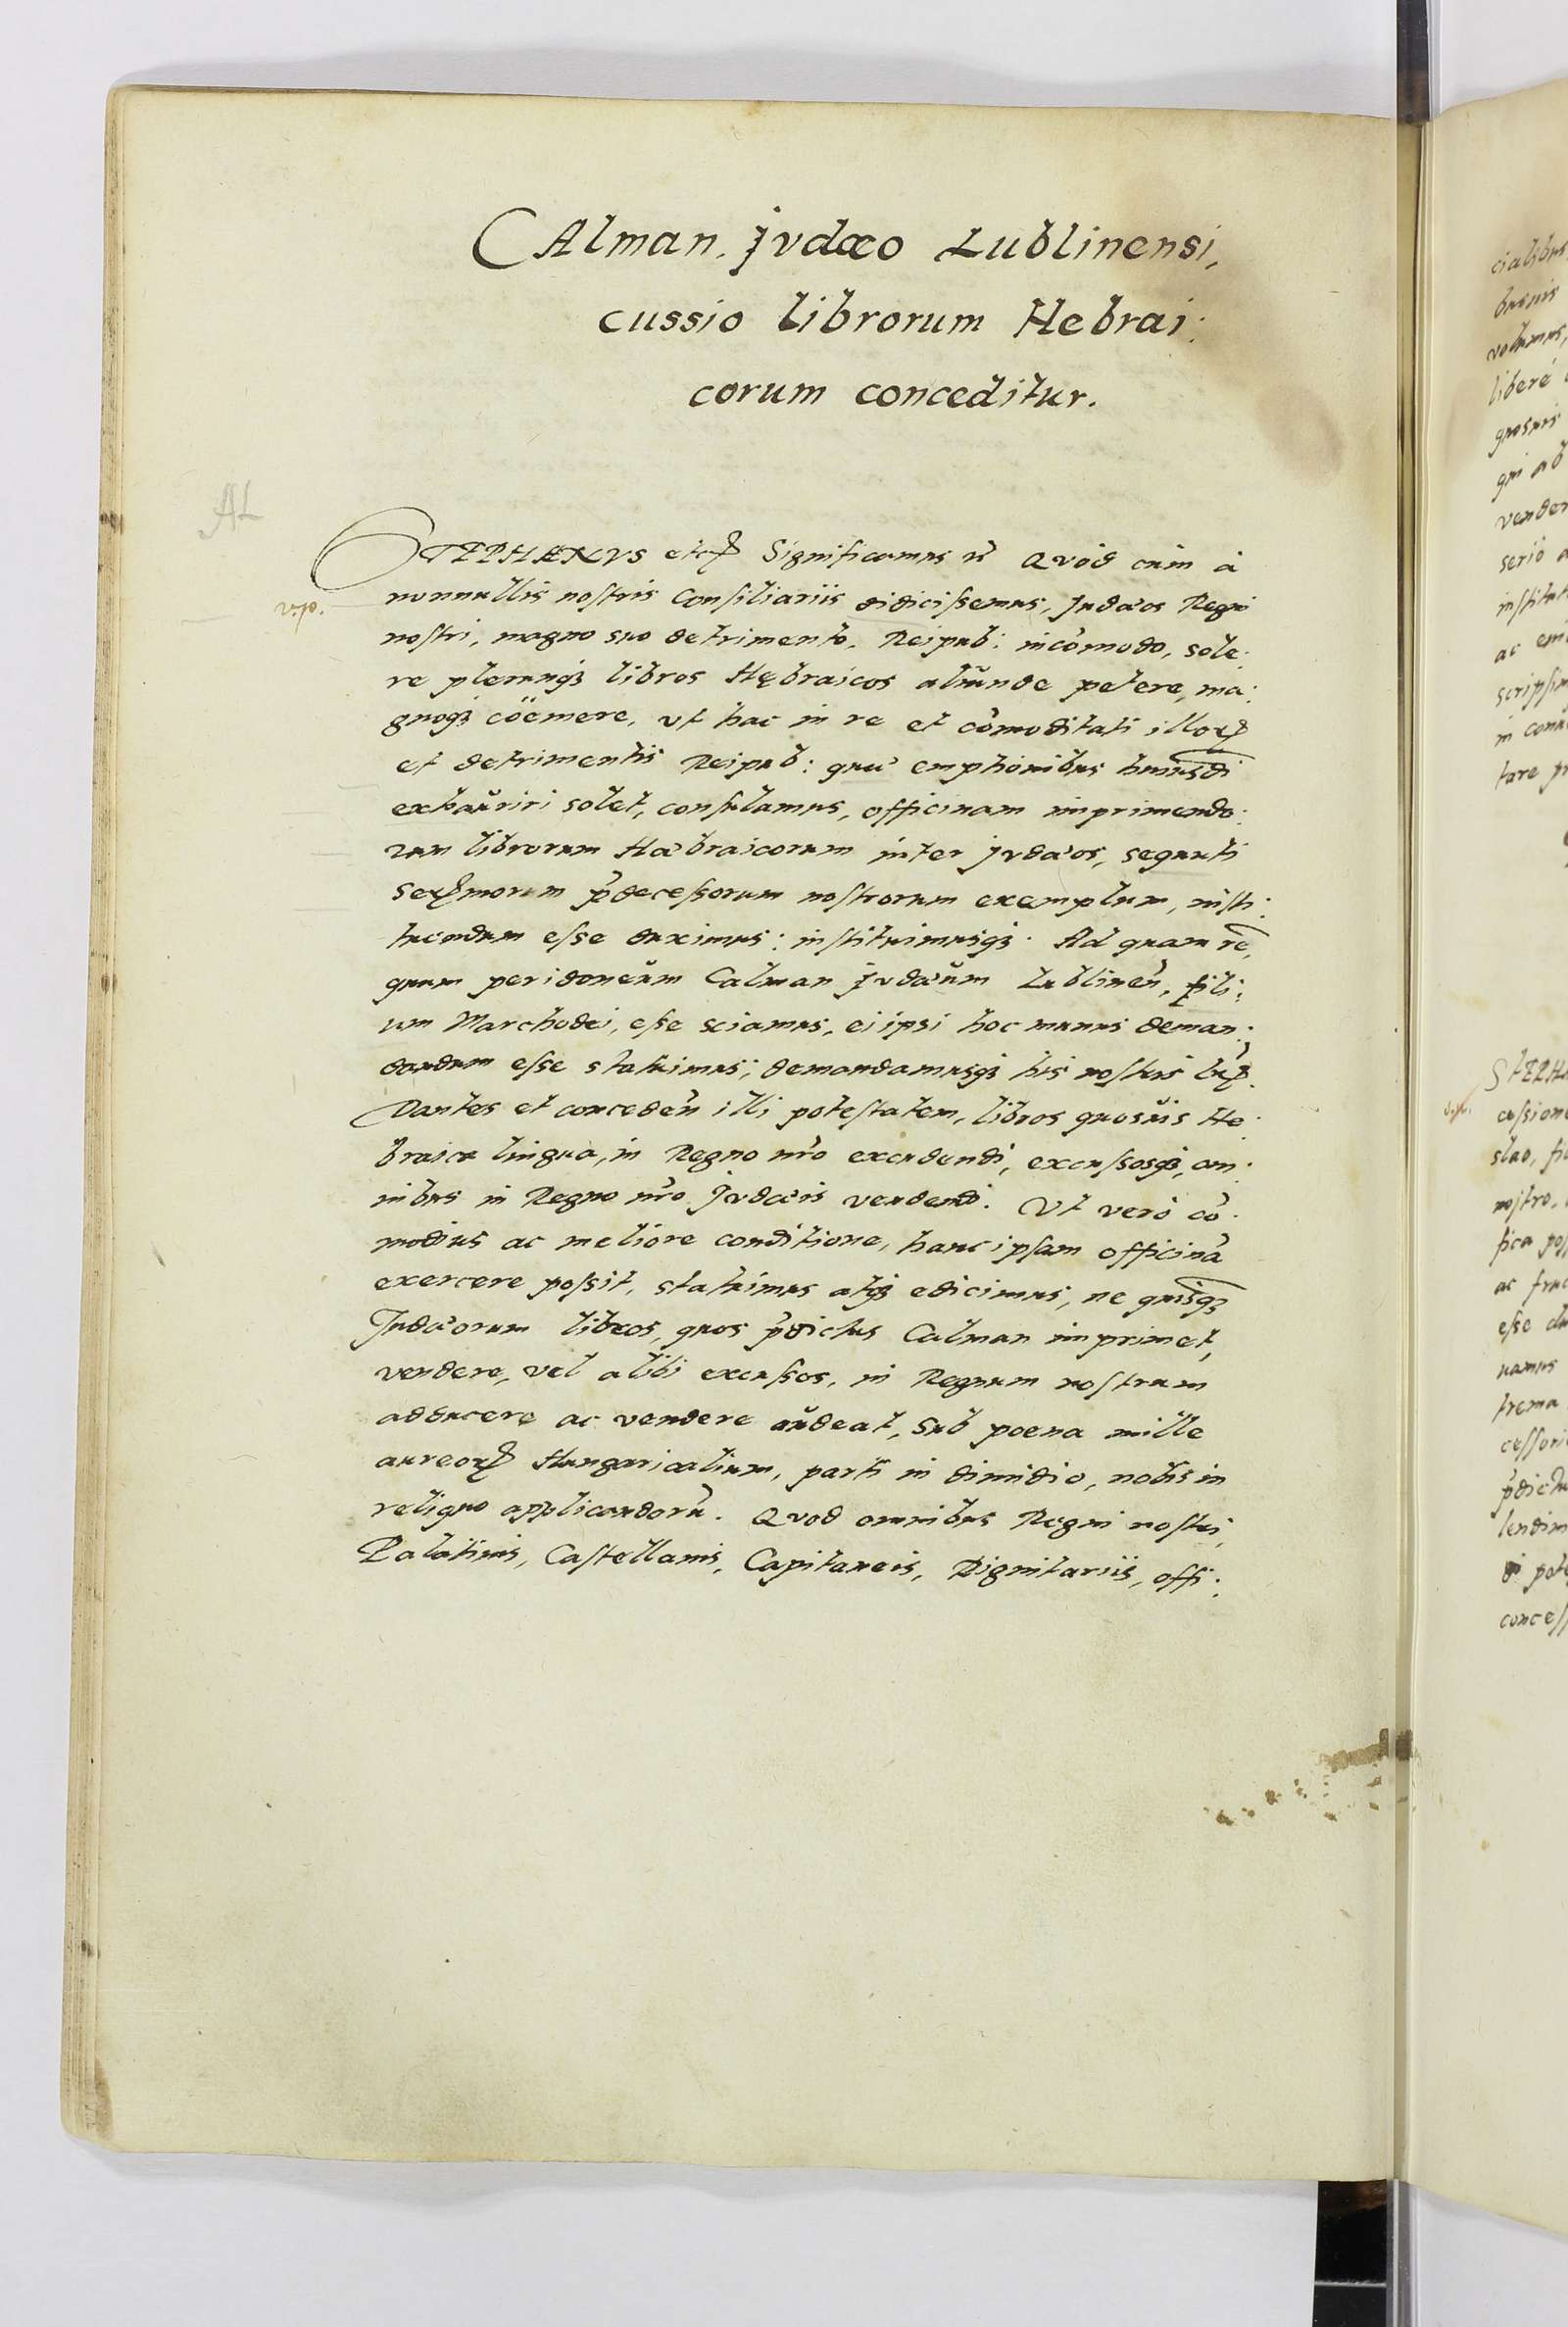 CAlman. Jvdæo Lublinensi,
cussio librorum Hebrai:
corum conceditur.
AL
STEPHANVS etc. Significamus etc. Qvòd cùm à
nonnullis nostris Consiliariis didicissemus, Judæos Regni
nostri, magno suo detrimento, Reipub: incōmodo, sole:
re plerunqꝫ libros Hębraicos aliunde petere, ma:
gnoqꝫ cöemere, vt hac in re et cōmoditati illoꝝ
et detrimentis Reipub: quæ emptionibus huiusdi
exhauriri solet, consulamus, officinam imprimendo:
rum librorum Hæbraicorum inter Jvdæos, sequuti
Serꝫmorum p̄decessorum nostrorum exemplum, insti:
tuendum esse duximus: instituimusqꝫ. Ad quam rē,
quum peridoneum Calman Jvdæum Lublineñ, fili:
um Marchodei, esse sciamus, ei ipsi hoc munus deman:
dandum esse statuimus; demandamusqꝫ his nostris lrīs.
Dantes et concedeñ illi potestatem, libros quosuis He:
braica lingua, in Regno nr̄o excudendi, excussosqꝫ, om:
nibus in Regno nr̄o Jvdæis vendendi. Vt verò cō:
modius ac meliore conditione, hanc ipsam officinā
exercere possit, statuimus atqꝫ edicimus, ne quisqꝫ
Judæorum libros, quos p̄dictus Calman imprimet,
vendere, vel alibi excussos, in Regnum nostrum
adducere ac vendere audeat, sub poena mille
aureoꝝ Hungaricalium, parti in dimidio, nobis in
reliquo applicandorū. Qvod omnibus Regni nostri,
Palatinis, Castellanis, Capitaneis, Dignitariis, offi:
cialibus
volumus,
liberè
quosuis
qui ab
serio
ac
tare
STEPH
cussion
nostro,
ac
esse
trema
p̄dictu